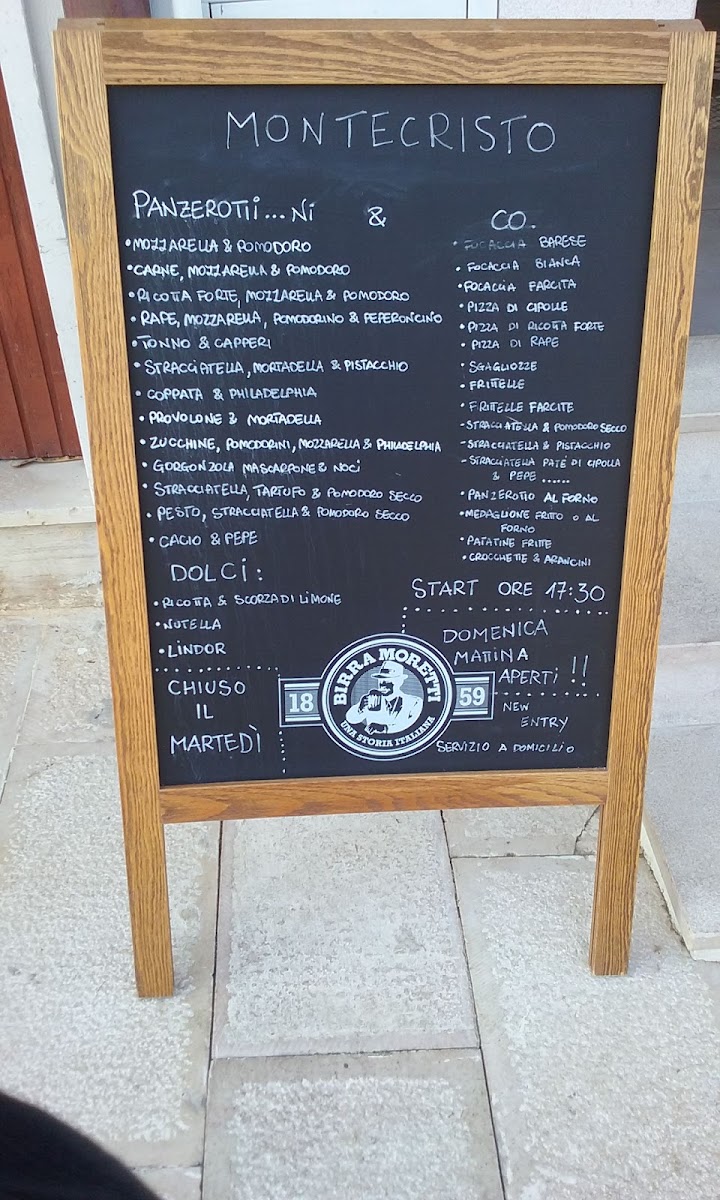 MONTECRISTO
PANZEROTTI...NI & CO.
•MOZZARELLA & POMODORO
•CARNE, MOZZARELLA & POMODORO
•RICOTTA FORTE, MOZZARELLA & POMODORO
•RAPE, MOZZARELLA, POMODORINO & PEPERONCINO
•TONNO & CAPPERI
•STRACCIATELLA, MORTADELLA & PISTACCHIO
•COPPATA & PHILADELPHIA
•PROVOLONE & MORTADELLA
•ZUCCHINE, POMODORINI, MOZZARELLA & PHILADELPHIA
•GORGONZOLA MASCARPONE & NOCI
•STRACCIATELLA, TARTUFO & POMODORO SECCO
•PESTO, STRACCIATELLA & POMODORO SECCO
•CACIO & PEPE
DOLCI:
•RICOTTA & SCORZA DI LIMONE
•NUTELLA
•LINDOR
CHIUSO
IL
MARTEDÌ
•FOCACCIA BARESE
•FOCACCIA BIANCA
•FOCACCIA FARCITA
•PIZZA DI CIPOLLE
•PIZZA DI RICOTTA FORTE
•PIZZA DI RAPE
•SGAGLIOZZE
•FRITTELLE
•FRITTELLE FARCITE
-STRACCIATELLA & POMODORO SECCO
-STRACCIATELLA & PISTACCHIO
-STRACCIATELLA PATÉ DI CIPOLLA
& PEPE ......
•PANZEROTTO AL FORNO
•MEDAGLIONE FRITTO O AL
FORNO
•PATATINE FRITTE
•CROCCHETTE & ARANCINI
START ORE 17:30
DOMENICA
MATTINA
APERTI !!
NEW
ENTRY
SERVIZIO A DOMICILIO
BIRRA MORETTI
18 59
UNA STORIA ITALIANA